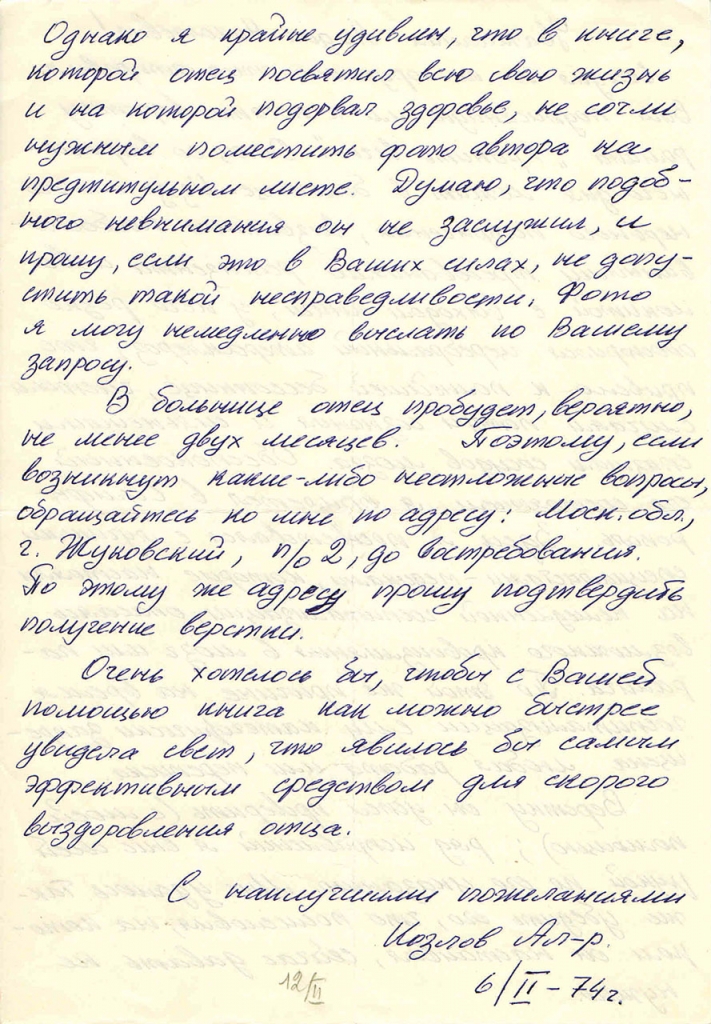 Однако я крайне удивлен, что в книге,
которой отец посвятил всю свою жизнь
и на которой подорвал здоровье, не сочли
нужным поместить фото автора на
предтитульном листе. Думаю, что подоб-
ного невнимания он не заслужил, и
прошу, если это в Ваших силах, не допу-
стить такой несправедливости. Фото
я могу немедленно выслать по Вашему
запросу.
В больнице отец пробудет, вероятно,
не менее двух месяцев. Поэтому, если
возникнут какие-либо неотложные вопросы,
обращайтесь ко мне по адресу: Моск. обл.,
г. Жуковский, п/о 2, до востребования.
По этому же адресу прошу подтвердить
получение верстки.
Очень хотелось бы, чтобы с Вашей
помощью книга как можно быстрее
увидела свет, что явилось бы самым
эффективным средством для скорого
выздоровления отца.
С наилучшими пожеланиями
Козлов Ал-р.
12/II
6/II-74г.